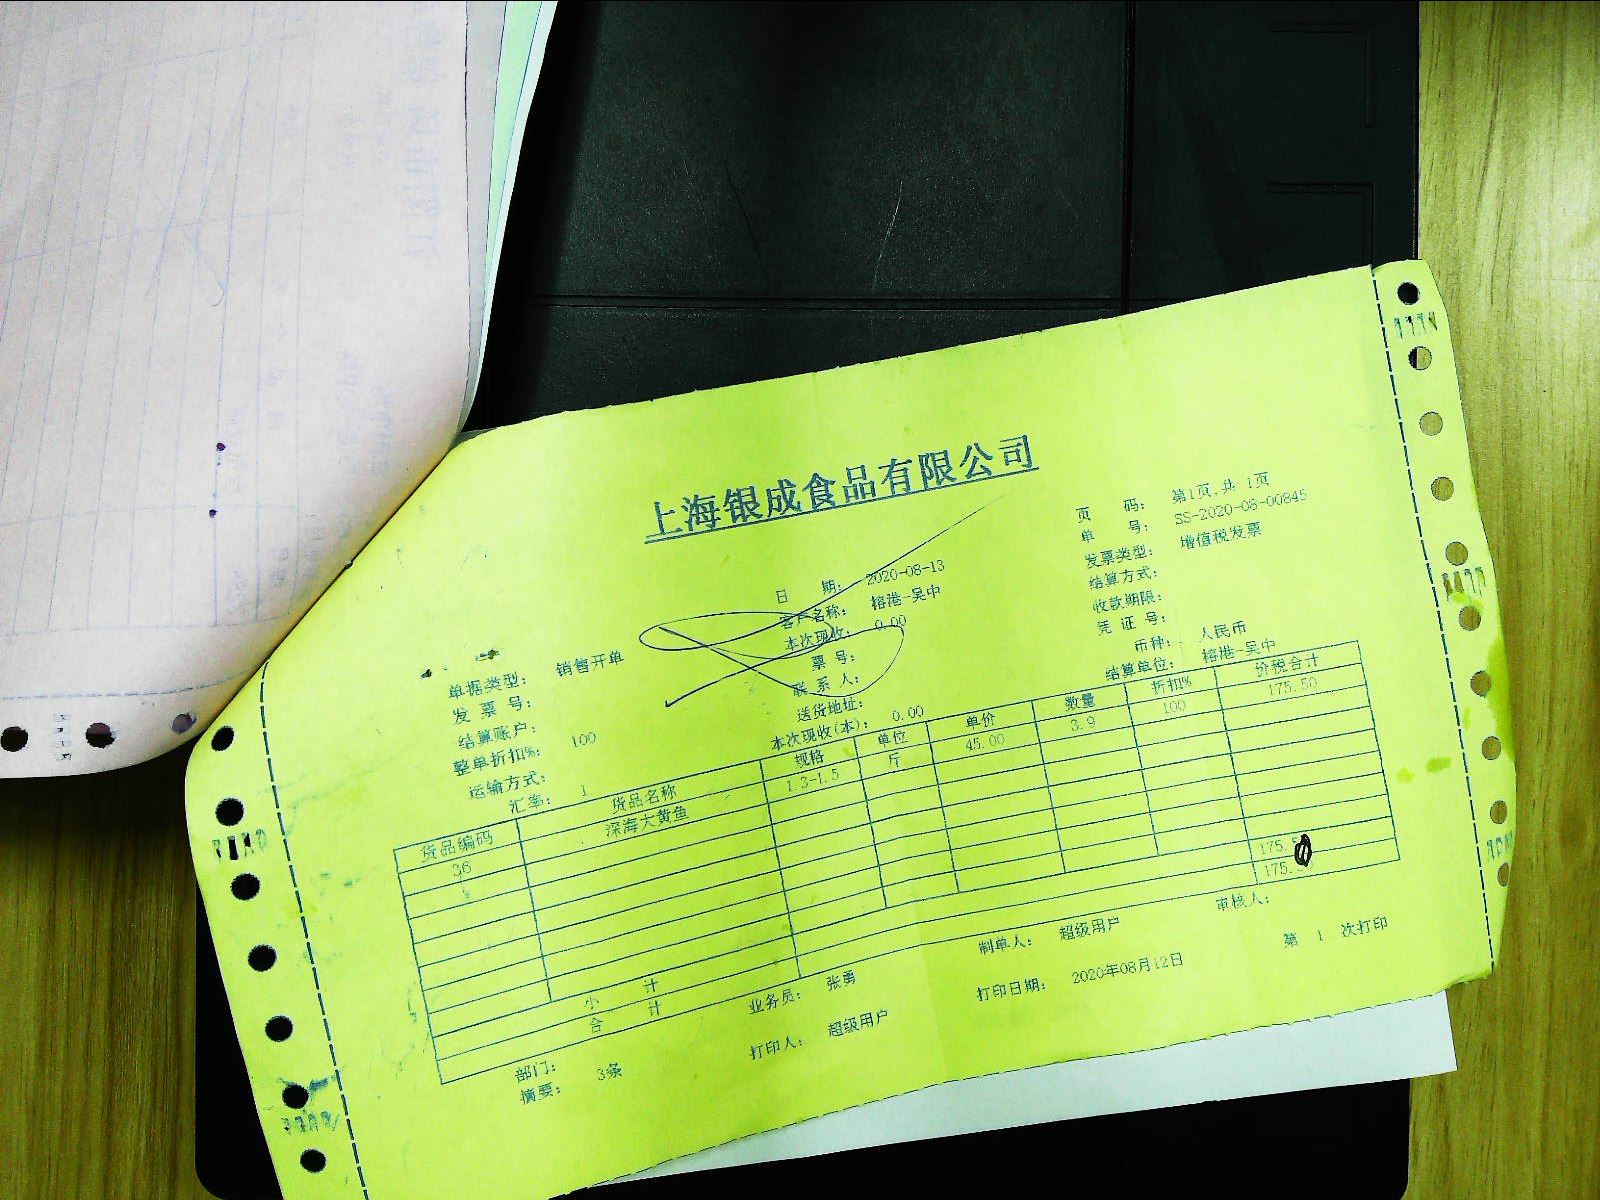 上海银成食品有限公司
页 码: 第1页,共 1页
单 号: SS-2020-08-00845
日 期: 2020-08-13 发票类型: 增值税发票
客户名称: 榕港-吴中 结算方式:
本次现收: 0.00 收款期限:
单据类型: 销售开单 票 号: 凭 证 号:
发 票 号: 联 系 人: 币种: 人民币
结算账户: 送货地址: 结算单位: 榕港-吴中
整单折扣%: 100 本次现收(本): 0.00
运输方式:
汇率: 1
货品编码 货品名称 规格 单位 单价 数量 折扣% 价税合计
36 深海大黄鱼 1.3-1.5 斤 45.00 3.9 100 175.50
小 计 175.
合 计 175.
部门: 业务员: 张勇 制单人: 超级用户 审核人:
摘要: 3条 打印人: 超级用户 打印日期: 2020年08月12日 第 1 次打印